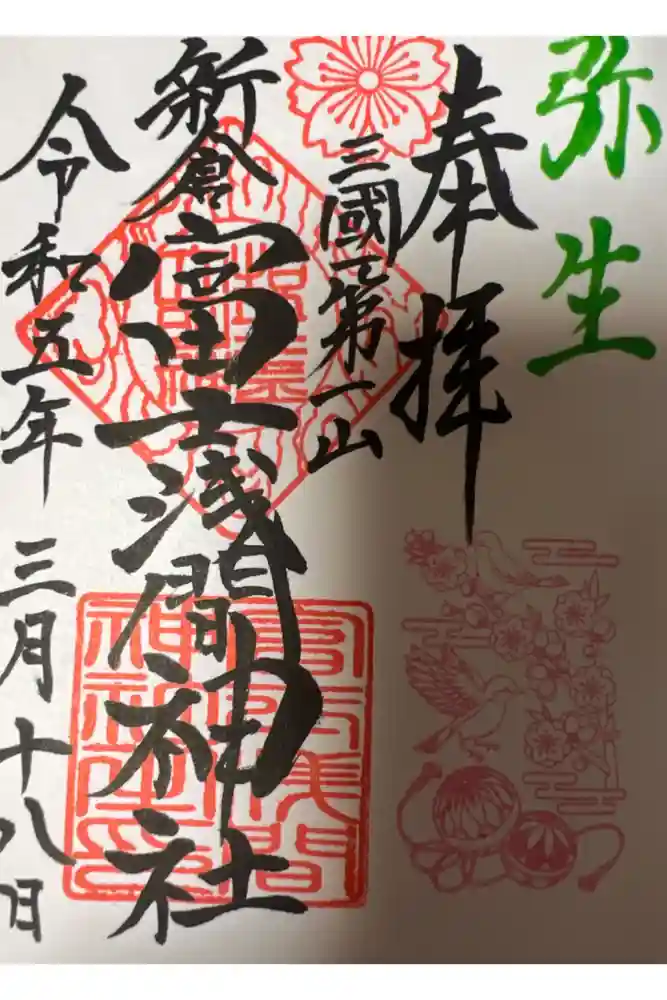 弥生
奉拝
三國第一山
新倉
富士浅間神社
令和五年 三月十八日